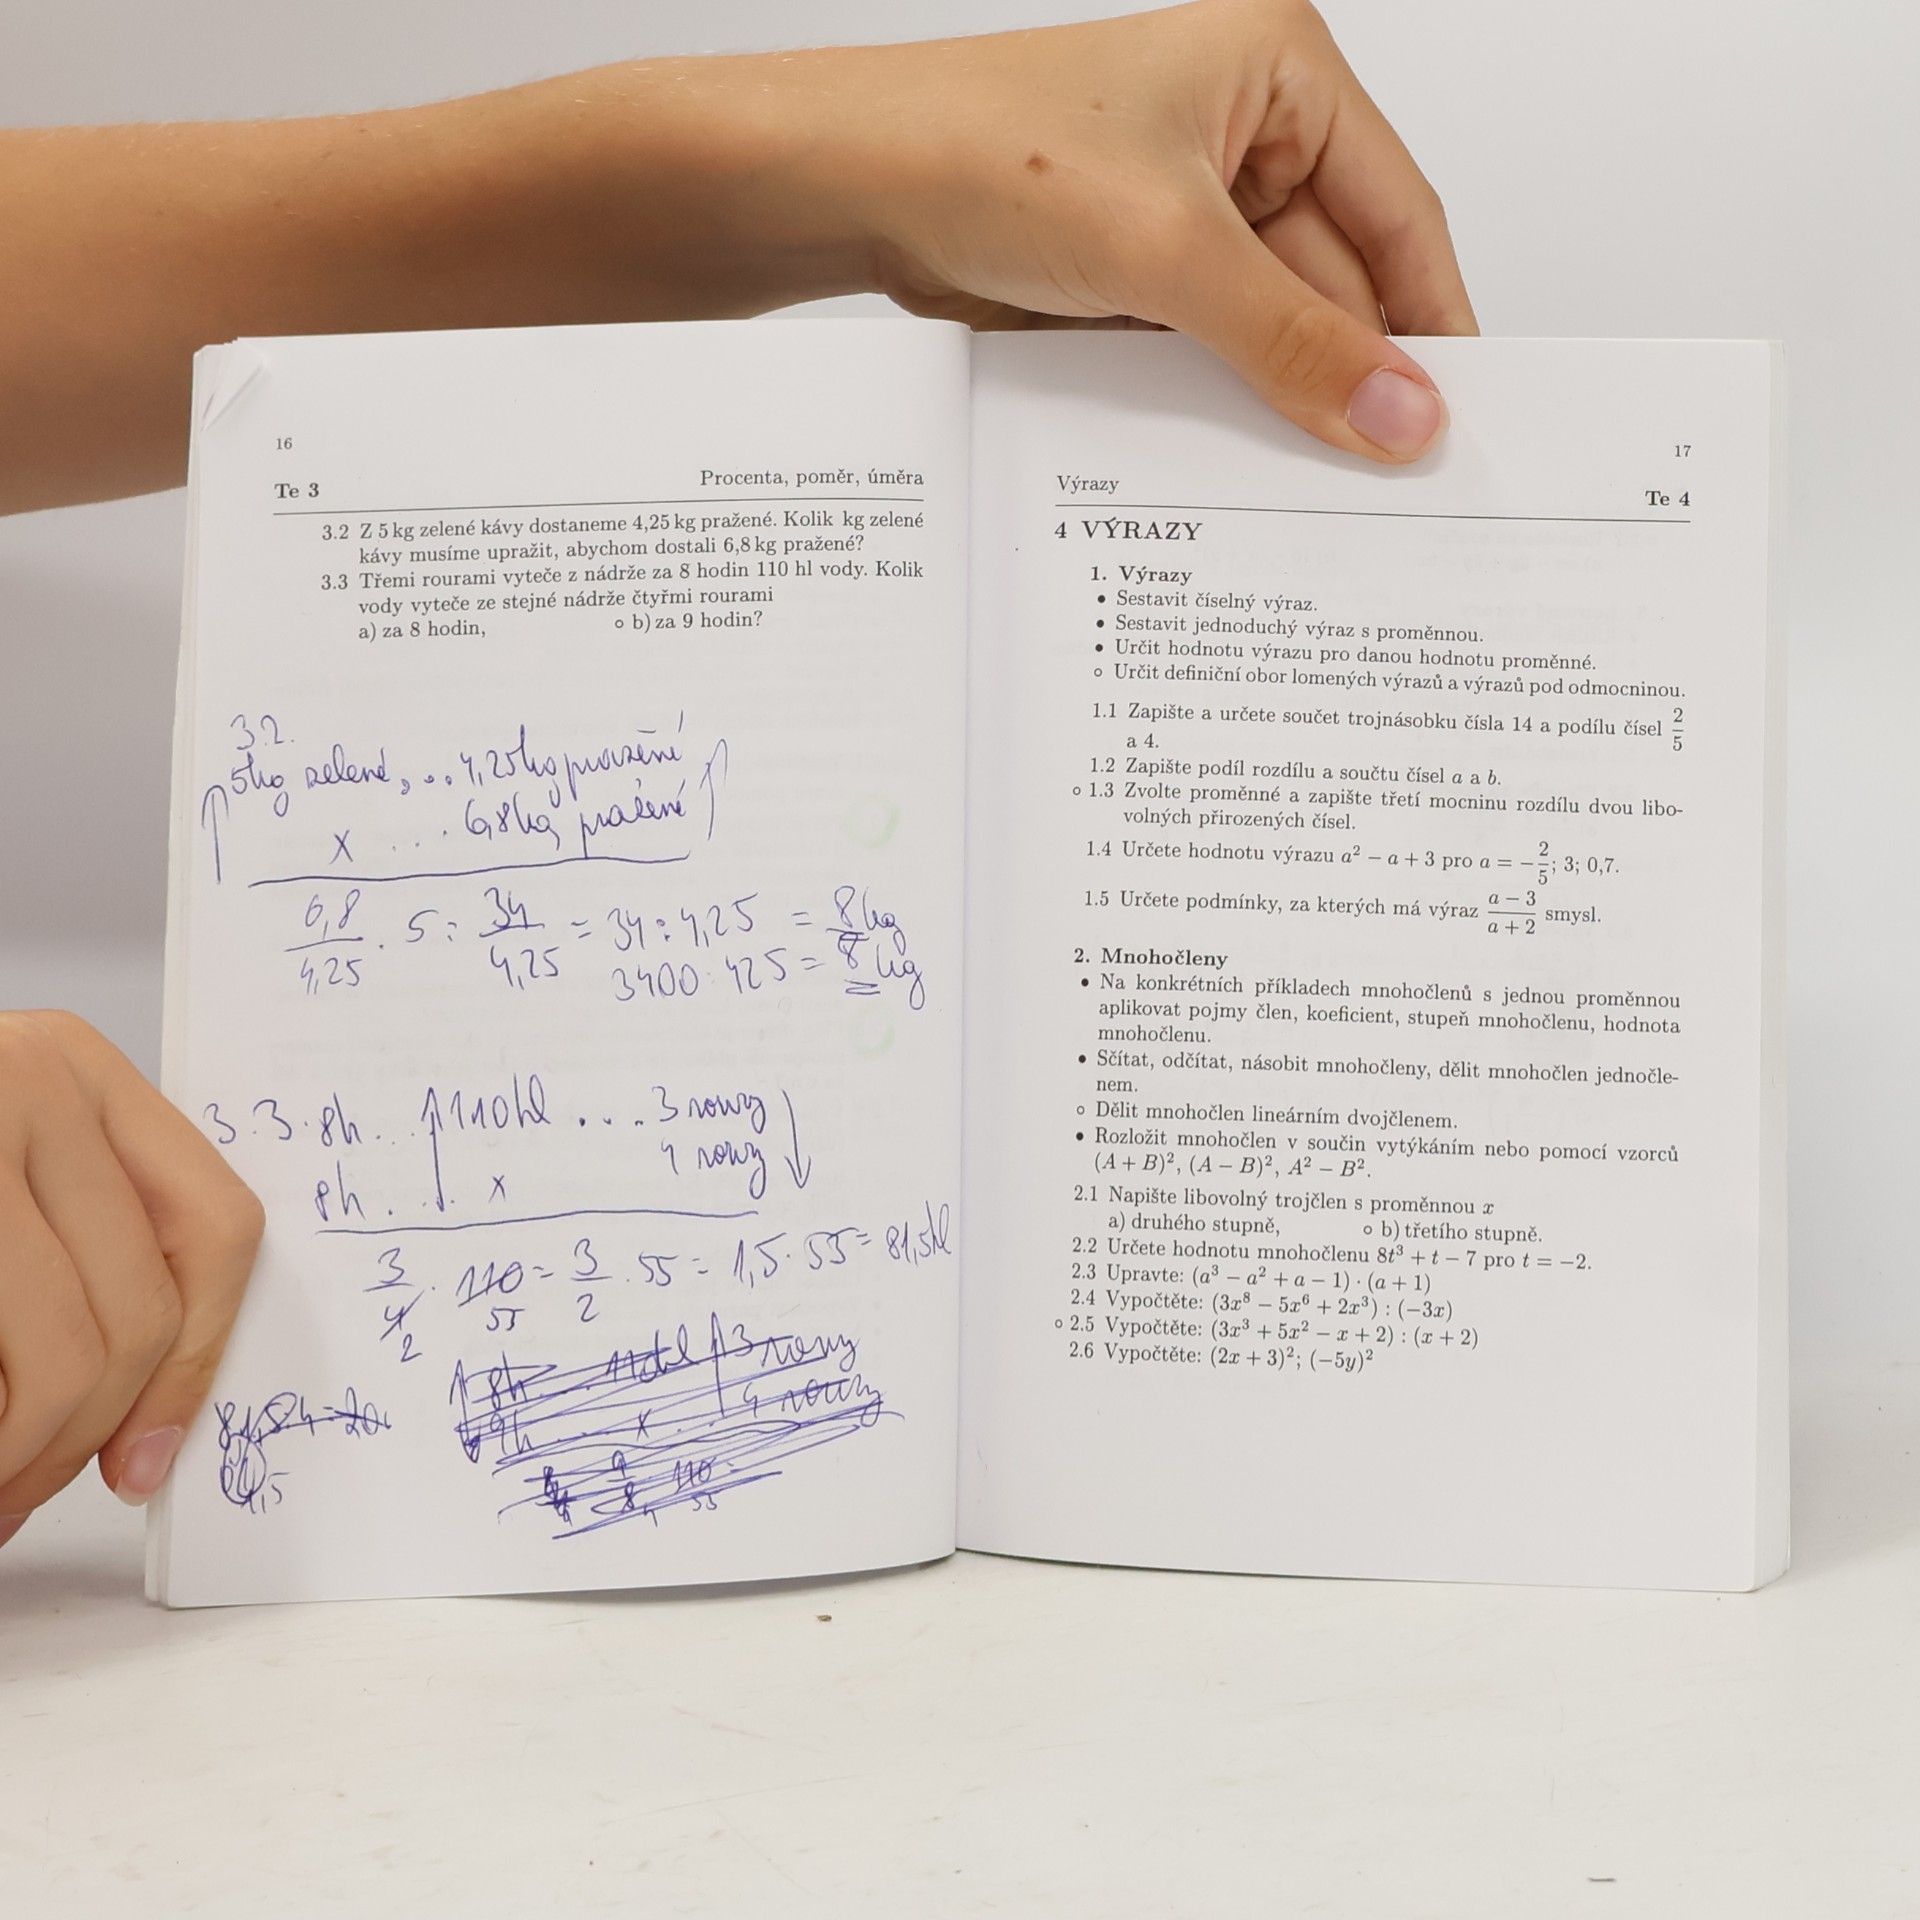 16
Te 3 Procenta, poměr, úměra
3.2 Z 5 kg zelené kávy dostaneme 4,25 kg pražené. Kolik kg zelené
kávy musíme upražit, abychom dostali 6,8 kg pražené?
3.3 Třemi rourami vyteče z nádrže za 8 hodin 110 hl vody. Kolik
vody vyteče ze stejné nádrže čtyřmi rourami
a) za 8 hodin, ∘ b) za 9 hodin?
3.2.
5kg zelené ... 4,25kg pražení
x ... 6,8kg pražené
6,8/4,25 · 5 = 34/4,25 = 34 : 4,25 = 8kg
3400 : 425 = 8 kg
3.3. 8h ... 110hl .... 3 roury
4 roury
8h ... x
3/4 · 110 = 3/2 · 55 = 1,5 · 55 = 81,5hl
2 55
8h ... 110hl 3 roury
9h ... x . 4 roury
17
Výrazy Te 4
4 VÝRAZY
1. Výrazy
• Sestavit číselný výraz.
• Sestavit jednoduchý výraz s proměnnou.
• Určit hodnotu výrazu pro danou hodnotu proměnné.
∘ Určit definiční obor lomených výrazů a výrazů pod odmocninou.
1.1 Zapište a určete součet trojnásobku čísla 14 a podílu čísel 2/5
a 4.
1.2 Zapište podíl rozdílu a součtu čísel a a b.
∘ 1.3 Zvolte proměnné a zapište třetí mocninu rozdílu dvou libo-
volných přirozených čísel.
1.4 Určete hodnotu výrazu a² − a + 3 pro a = −2/5; 3; 0,7.
1.5 Určete podmínky, za kterých má výraz (a − 3)/(a + 2) smysl.
2. Mnohočleny
• Na konkrétních příkladech mnohočlenů s jednou proměnnou
aplikovat pojmy člen, koeficient, stupeň mnohočlenu, hodnota
mnohočlenu.
• Sčítat, odčítat, násobit mnohočleny, dělit mnohočlen jednočle-
nem.
∘ Dělit mnohočlen lineárním dvojčlenem.
• Rozložit mnohočlen v součin vytýkáním nebo pomocí vzorců
(A + B)², (A − B)², A² − B².
2.1 Napište libovolný trojčlen s proměnnou x
a) druhého stupně, ∘ b) třetího stupně.
2.2 Určete hodnotu mnohočlenu 8t³ + t − 7 pro t = −2.
2.3 Upravte: (a³ − a² + a − 1) · (a + 1)
2.4 Vypočtěte: (3x⁸ − 5x⁶ + 2x³) : (−3x)
∘ 2.5 Vypočtěte: (3x³ + 5x² − x + 2) : (x + 2)
2.6 Vypočtěte: (2x + 3)²; (−5y)²